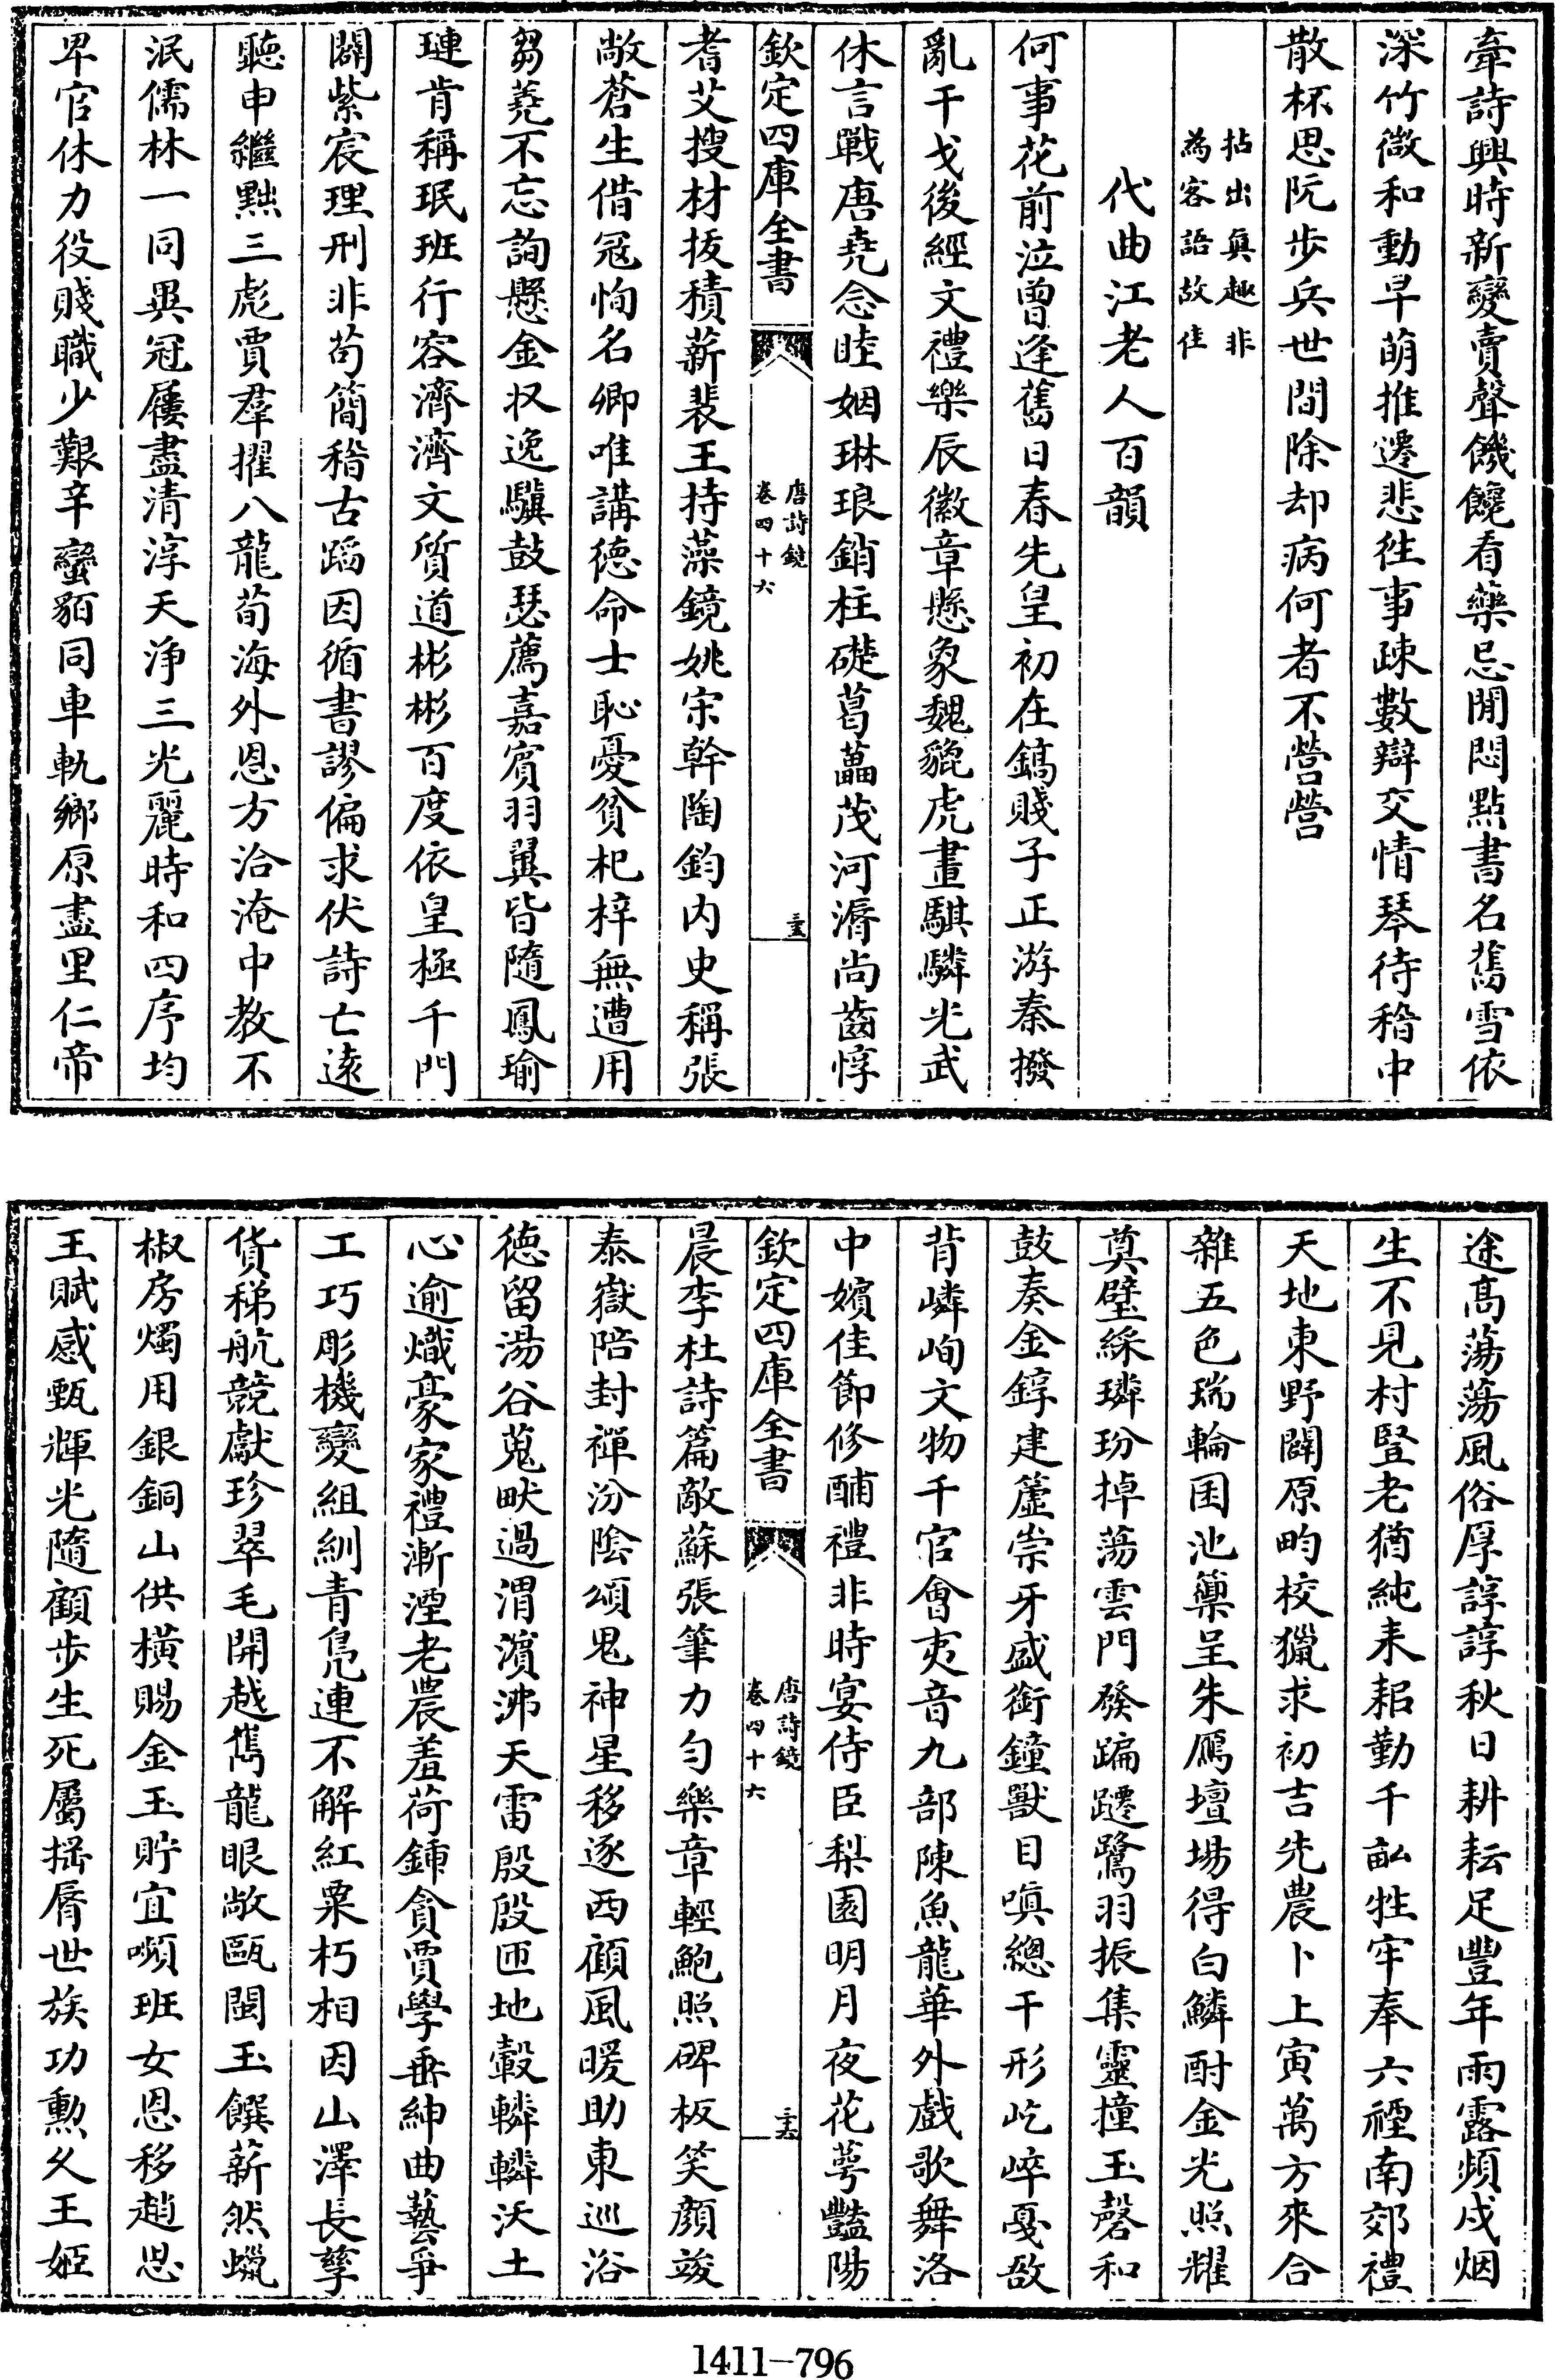 牽詩興時新變賣聲饑饞看藥忌閒悶點書名舊雪依
深竹微和動早萌推遷悲徃事疎數辯交情琴待稽中
散杯思阮步兵世間除却病何者不營營
拈出真趣非
為客語故佳
代曲江老人百韻
何事花前泣曾逢舊日春先皇初在鎬賤子正游秦撥
亂干戈後經文禮樂辰徽章懸象魏貔虎畫騏驎光武
休言戰唐堯念睦姻琳琅銷柱礎葛藟茂河漘尚齒惇
欽定四庫全書
唐詩鏡
卷四十六
三十五
耆艾搜材拔積薪裴王持藻鏡姚宋幹陶鈞内史稱張
敞蒼生借冦恂名卿唯講徳命士恥憂貧杞梓無遭用
芻蕘不忘詢懸金収逸驥鼓瑟薦嘉賓羽翼皆隨鳳瑜
璉肯稱珉班行容濟濟文質道彬彬百度依皇極千門
闢紫宸理刑非苟簡稽古蹈因循書謬偏求伏詩亡遠
聽申繼黜三彪賈羣擢八龍荀海外恩方洽淹中教不
泯儒林一同異冠屨盡清淳天淨三光麗時和四序均
卑官休力役賤職少艱辛蠻貊同車軌鄉原盡里仁帝
途髙蕩蕩風俗厚諄諄秋日耕耘足豐年雨露頻戍烟
生不見村豎老猶純耒耜勤千畝牲牢奉六禋南郊禮
天地東野闢原畇校獵求初吉先農卜上寅萬方來合
雜五色瑞輪囷池籞呈朱鴈壇場得白鱗酎金光照耀
奠璧綵璘玢掉蕩雲門發蹁躚鷺羽振集靈撞玉磬和
鼓奏金錞建簴崇牙盛銜鐘獸目嗔總干形屹崪戛敔
背嶙峋文物千官會夷音九部陳魚龍華外戲歌舞洛
中嬪佳節修酺禮非時宴侍臣梨園明月夜花萼豔陽
欽定四庫全書
唐詩鏡
卷四十六
三十六
晨李杜詩篇敵蘇張筆力匀樂章輕鮑照碑板笑顔竣
泰嶽陪封禪汾陰頌鬼神星移逐西顧風暖助東巡浴
徳留湯谷蒐畎過渭濵沸天雷殷殷匝地轂轔轔沃土
心逾熾豪家禮漸湮老農羞荷鍤貪賈學垂紳曲藝爭
工巧彫機變組紃青鳬連不解紅粟朽相因山澤長孳
貨稊航競獻珍翠毛開越巂龍眼敞甌閩玉饌薪然蠟
椒房燭用銀銅山供横賜金玉貯宜嚬班女恩移趙思
王賦感甄輝光隨顧步生死屬揺脣世族功勲久王姬
1411-796